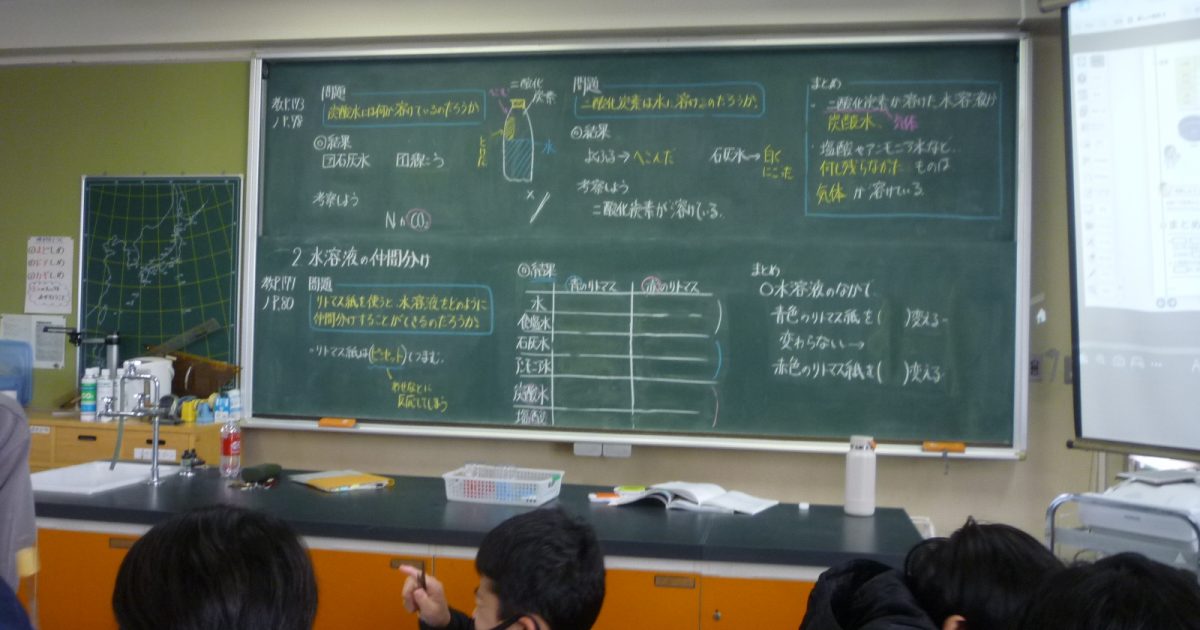 教P.173
ノP.78
問題
炭酸水には何が溶けているのだろうか
◎結果
石灰水
線こう
考察しよう
CO₂
二酸化
炭素
水
問題
二酸化炭素は水に溶けるのだろうか。
◎結果
よくふる→へこんだ
石灰水→白く
にごった
考察しよう
二酸化炭素が溶けている。
まとめ
・二酸化炭素が溶けた水溶液が
炭酸水、気体
・塩酸やアンモニア水など…
何も残らなかったものは
気体が溶けている。
2 水溶液の仲間分け
教P.171
ノP.80
問題
リトマス紙を使うと、水溶液をどのように
仲間分けすることができるのだろうか。
・リトマス紙は(ピンセット)でつまむ。
あせなどに
反応してしまう
◎結果
青のリトマス 赤のリトマス
水
食塩水
石灰水
アンモニア水
炭酸水
塩酸
まとめ
○水溶液のなかで
青色のリトマス紙を( )変える…
変わらない→
赤色のリトマス紙を( )変える…